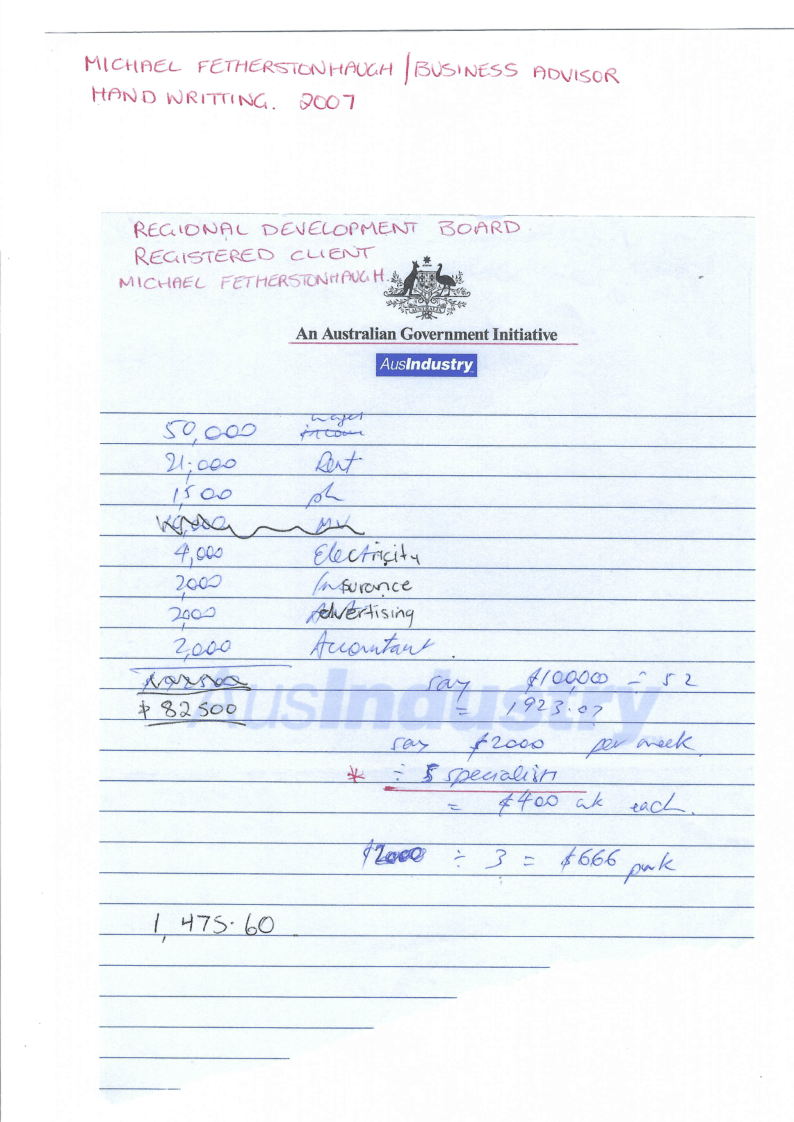 MICHAEL FETHERSTONHAUGH / BUSINESS ADVISOR
HAND WRITTING. 2007
REGIONAL DEVELOPMENT BOARD
REGISTERED CLIENT
MICHAEL FETHERSTONHAUGH.
An Australian Government Initiative
AusIndustry
50,000 wages income
21,000 Rent
1,500 ph
4,000 Electricity
2,000 Insurance
2,000 Advertising
2,000 Accountant.
say $100,000 ÷ 52
$82500 = 1923.07
AusIndustry
say $2000 per week.
* ÷ 5 specialists
= $400 wk each.
$2000 ÷ 3 = $666 p wk
1,475.60